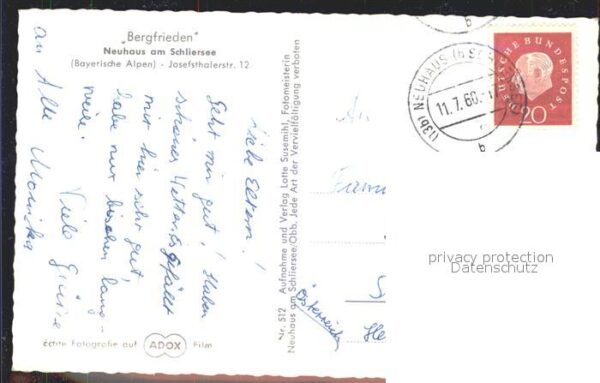 „Bergfrieden"
Neuhaus am Schliersee
(Bayerische Alpen) - Josefsthalerstr. 12
Liebe Eltern!
Geht mir gut! Haben
schönes Wetter. Es gefällt
mir hier sehr gut!
habe nur bischen lang-
weile. Viele Grüsse
an Alle Monika
echte Fotografie auf ADOX Film
Nr. 512 Aufnahme und Verlag Lotte Susemihl, Fotomeisterin
Neuhaus am Schliersee/Obb. Jede Art der Vervielfältigung verboten
An
Fam
Österreich
(13b) NEUHAUS
11.7.60.
b
b
DEUTSCHE BUNDESPOST
20
privacy protection
Datenschutz